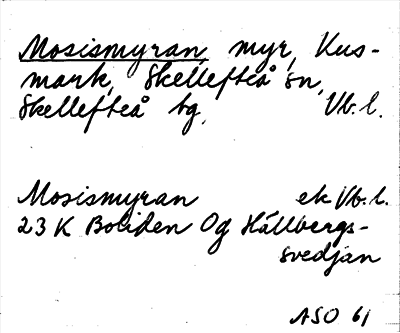 Mosismyran, myr, Kus-
mark, Skellefteå sn,
Skellefteå tg, Vb. l.
Mosismyran ek Vb. l.
23 K Boliden 0g Hällbergs-
svedjan
ASO 61